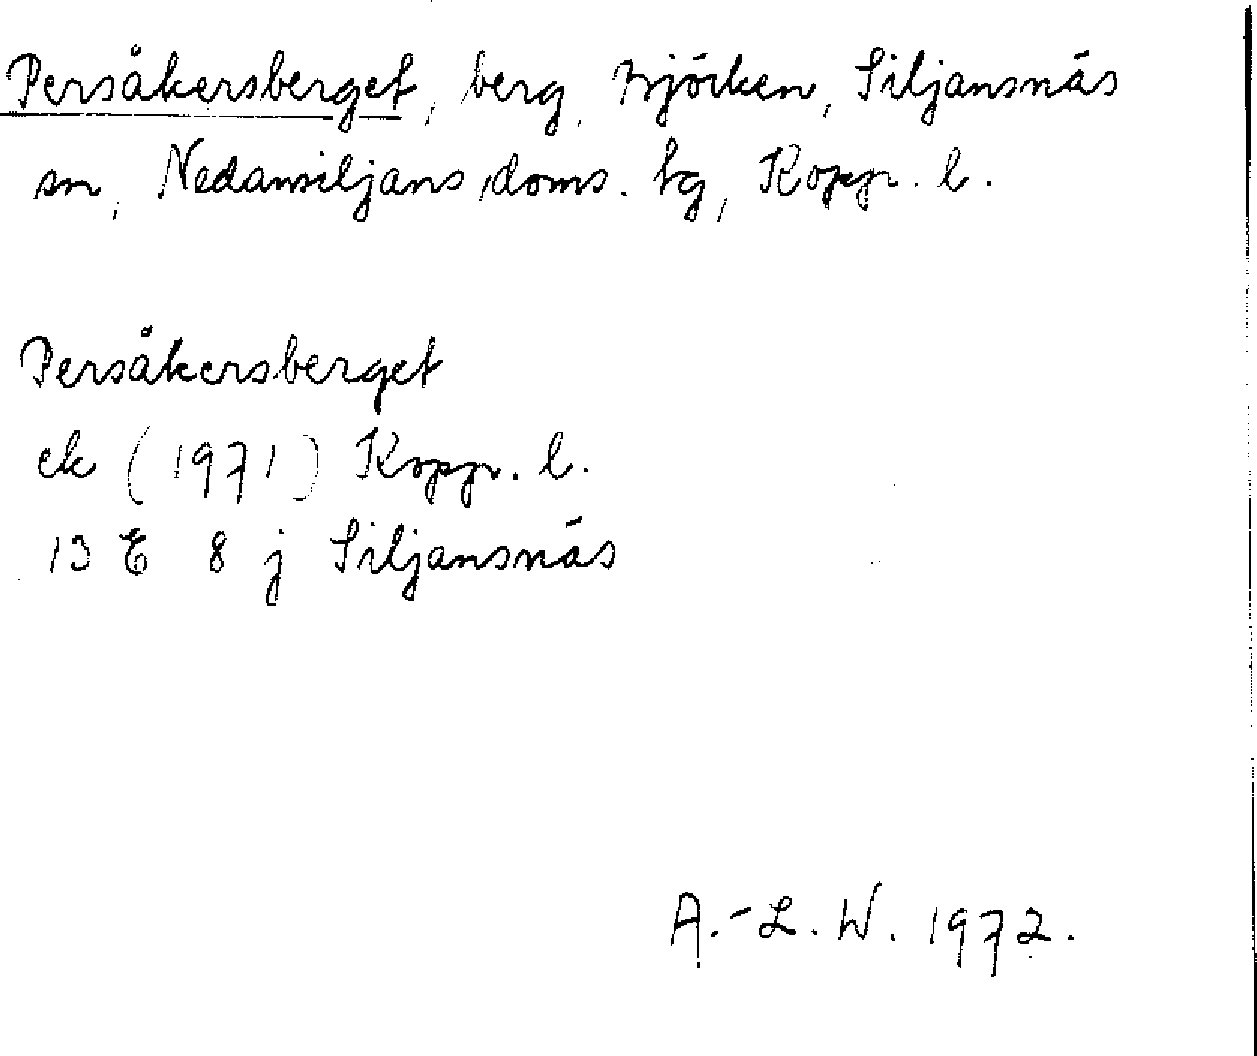 Persåkersberget, berg, Björken, Siljansnäs
sn, Nedansiljans doms. tg, Kopp. l.
Persåkersberget
ek (1971) Kopp. l.
13 E 8 j Siljansnäs
A.-L. W. 1972.